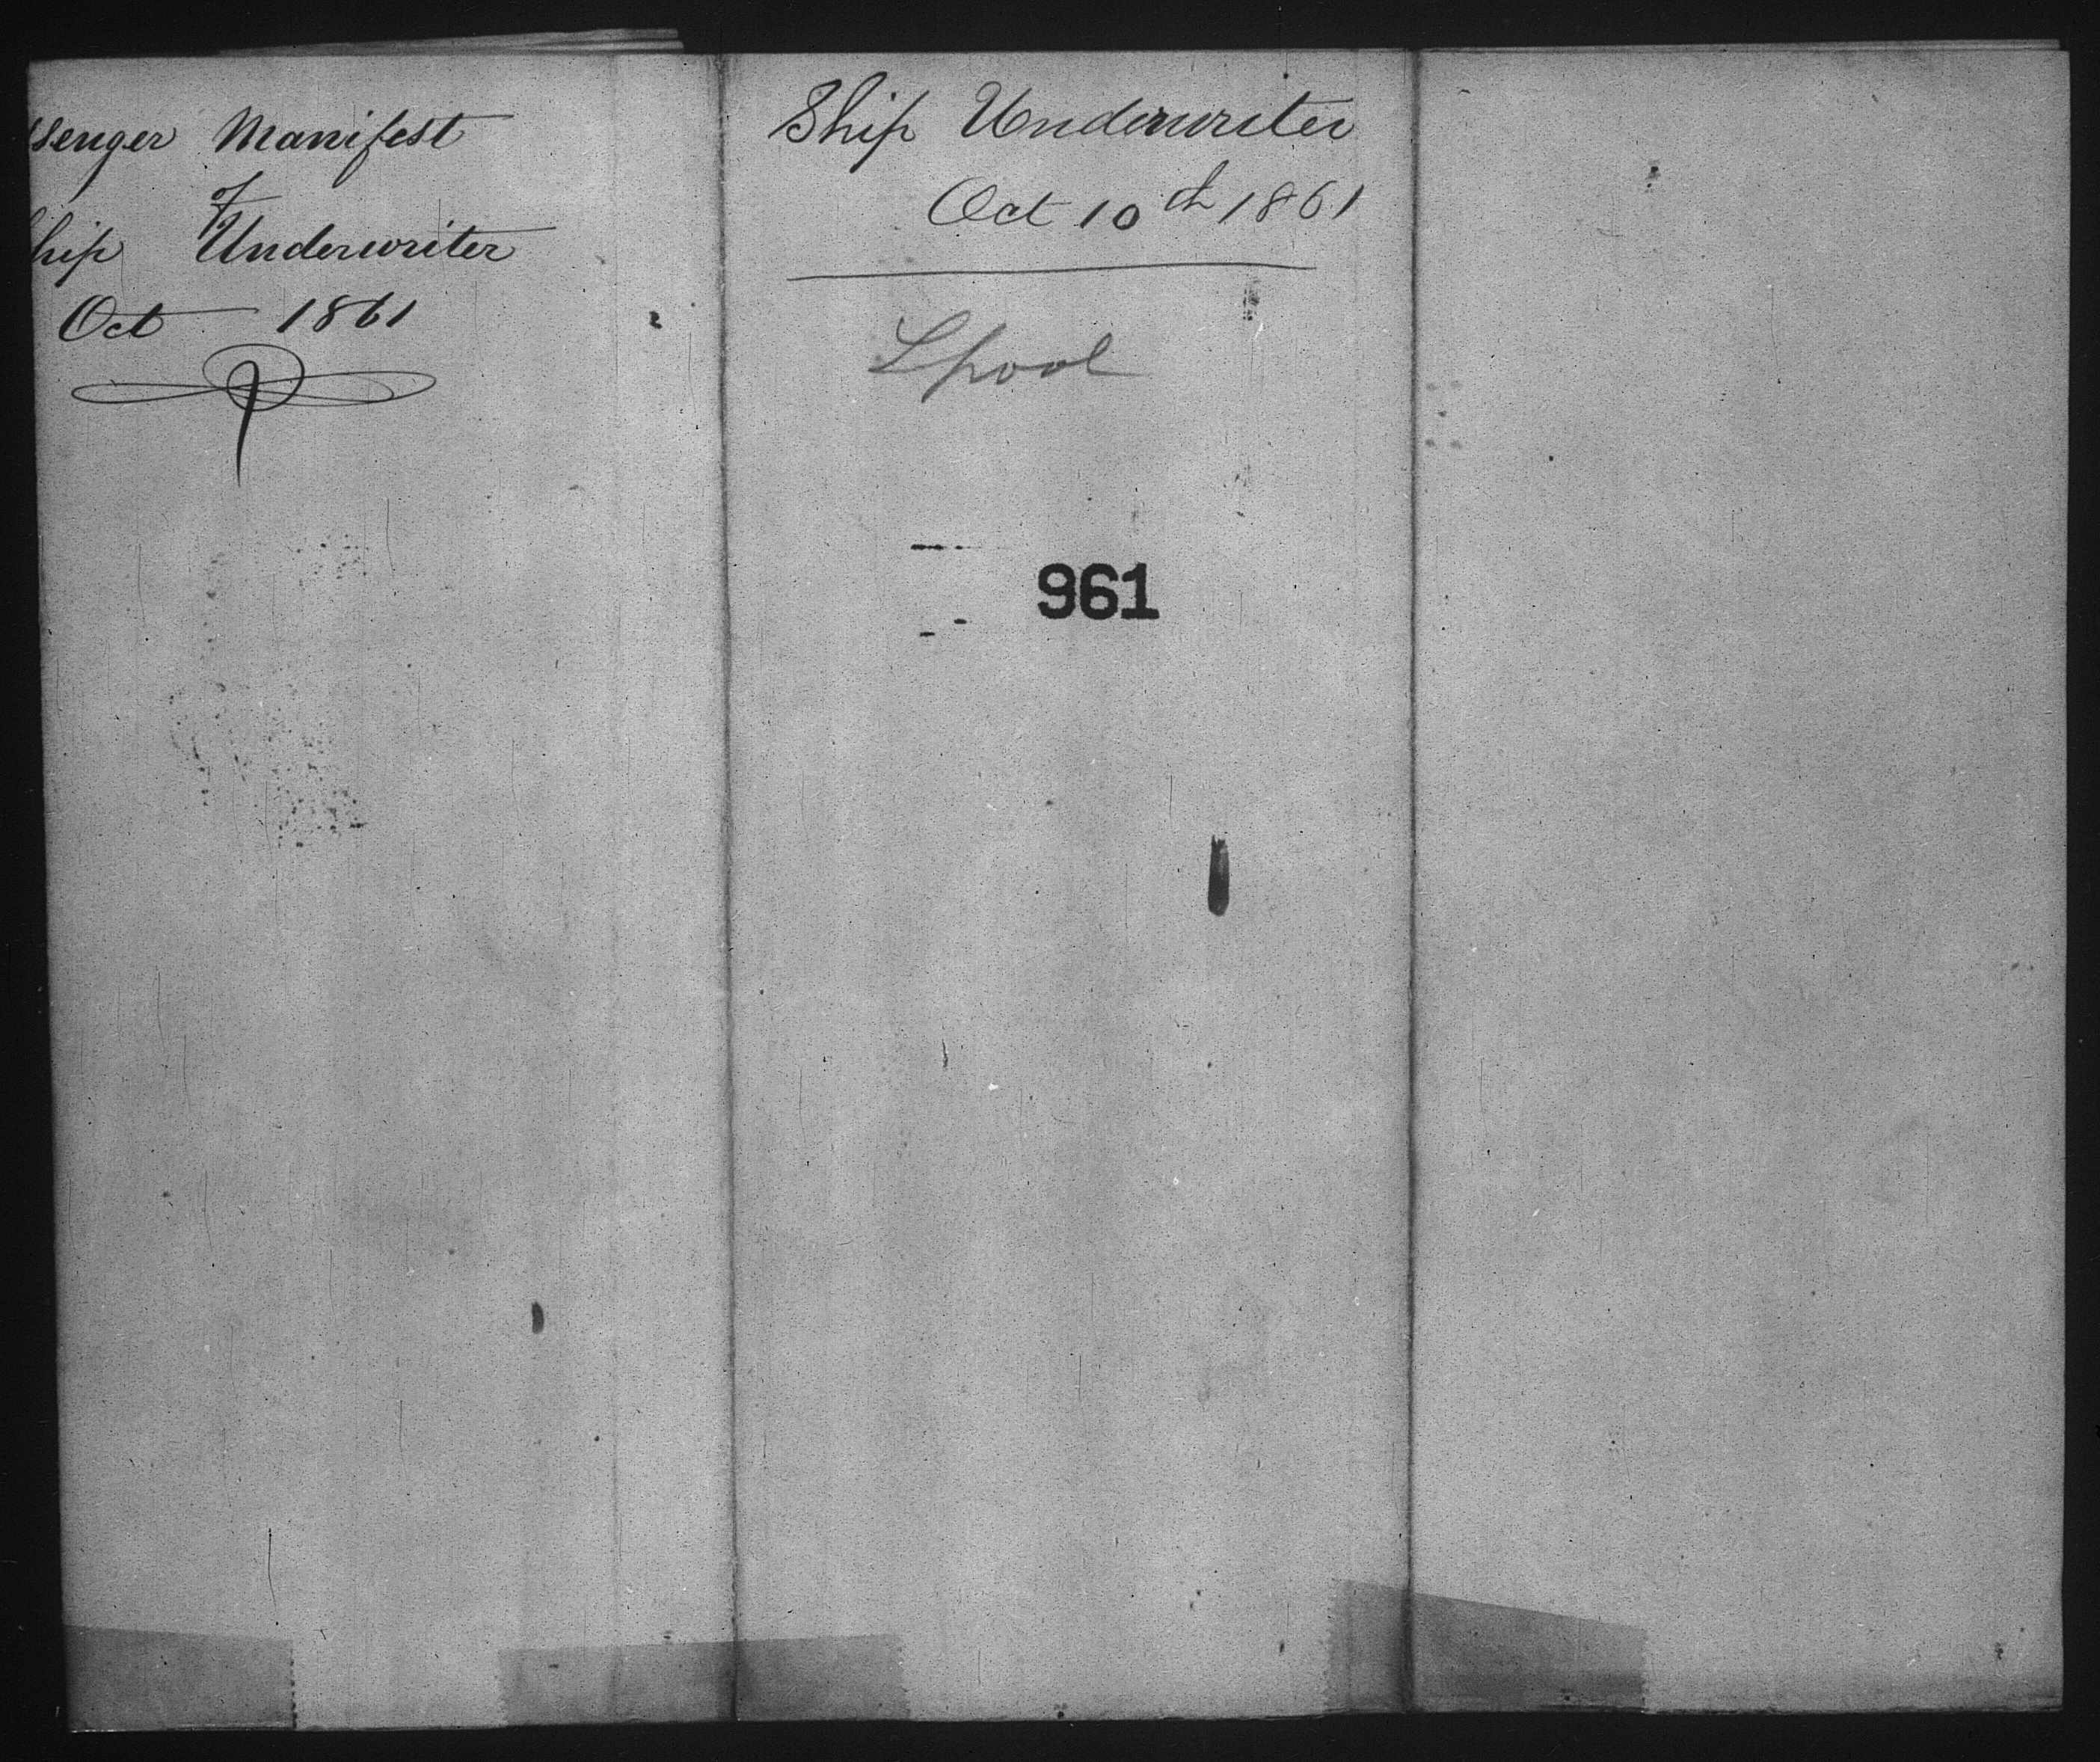 ssenger Manifest
of
hip Underwriter
Oct 1861
Ship Underwriter
Oct 10th 1861
Lpool
961